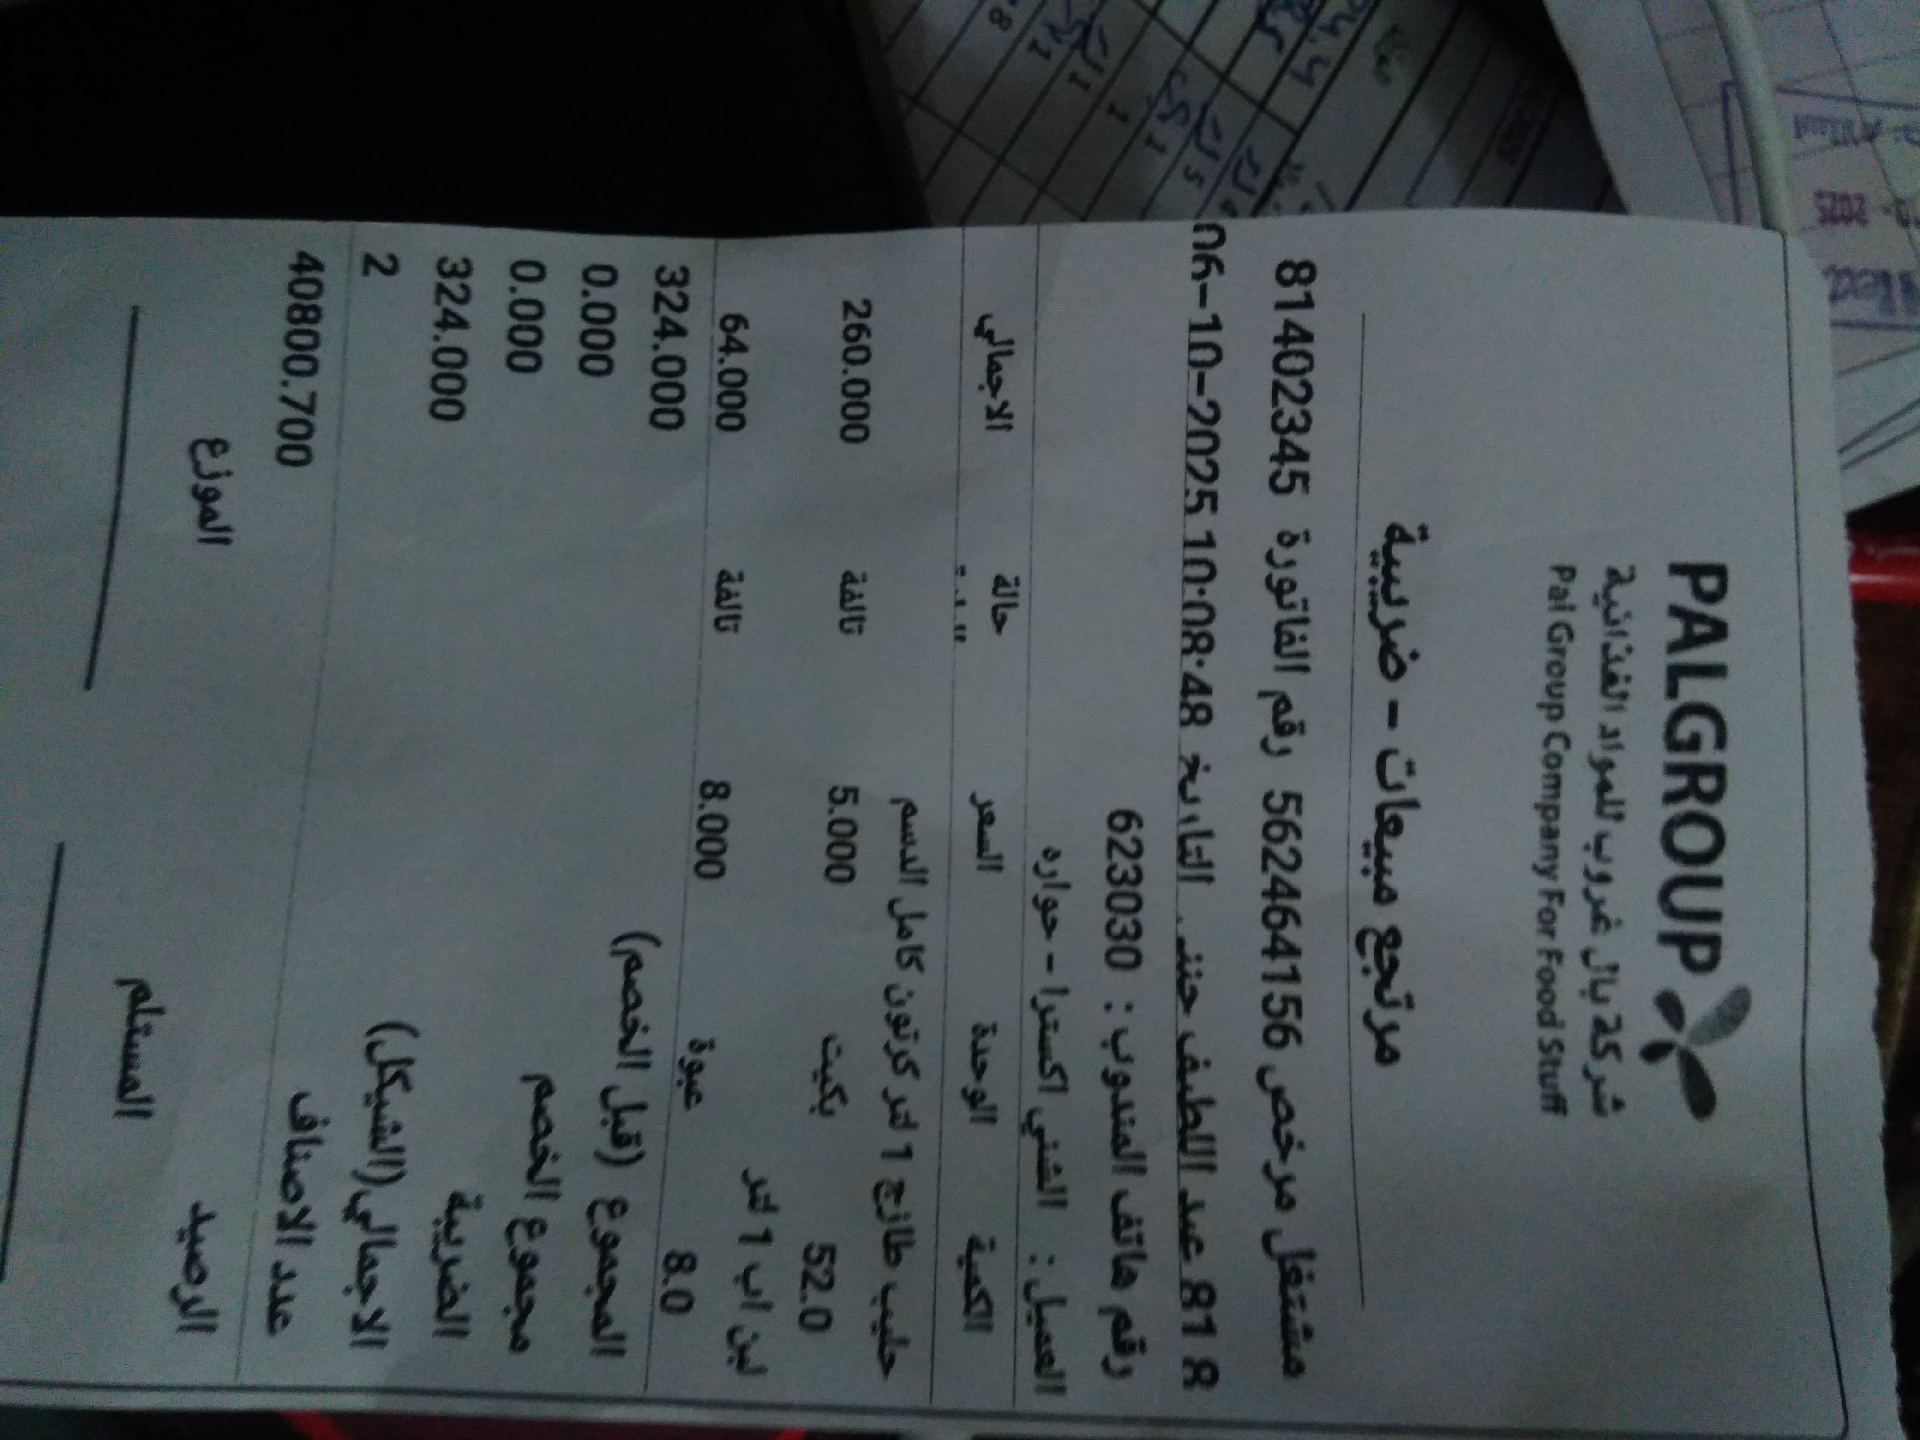 PALGROUP
شركة بال غروب للمواد الغذائية
Pal Group Company For Food Stuff
مرتجع مبيعات - ضريبية
مشتغل مرخص 562464156 رقم الفاتورة 81402345
81 8 عبد اللطيف التاريخ 10:08:48 2025-10-06
رقم هاتف المندوب : 623030
العميل : الشني اكسترا - حواره
الكمية الوحدة السعر حالة الاجمالي
حليب طازج 1 لتر كرتون كامل الدسم
52.0 بكيت 5.000 تالفة 260.000
لبن اب 1 لتر
8.0 عبوة 8.000 تالفة 64.000
المجموع (قبل الخصم) 324.000
مجموع الخصم 0.000
الضريبة 0.000
الاجمالي(الشيكل) 324.000
عدد الاصناف 2
الرصيد 40800.700
المستلم الموزع
2025